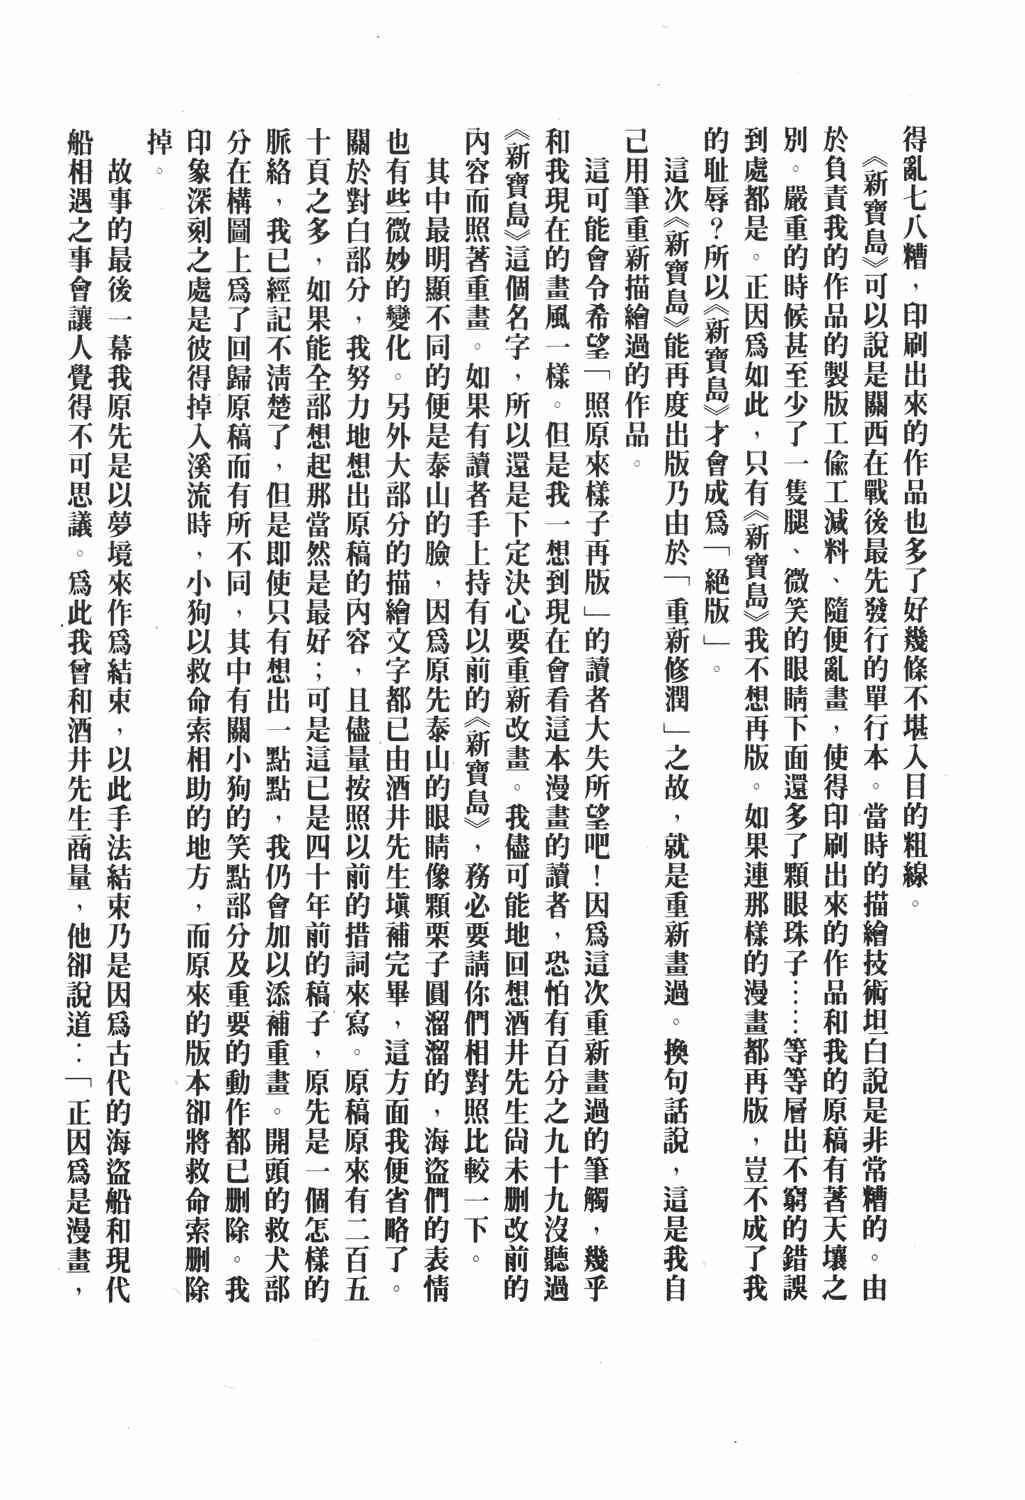 得亂七八糟，印刷出來的作品也多了好幾條不堪入目的粗線。
《新寶島》可以說是關西在戰後最先發行的單行本。當時的描繪技術坦白說是非常糟的。由
於負責我的作品的製版工偸工減料、隨便亂畫，使得印刷出來的作品和我的原稿有著天壤之
別。嚴重的時候甚至少了一隻腿、微笑的眼睛下面還多了顆眼珠子……等等層出不窮的錯誤
到處都是。正因爲如此，只有《新寶島》我不想再版。如果連那樣的漫畫都再版，豈不成了我
的耻辱？所以《新寶島》才會成爲「絕版」。
這次《新寶島》能再度出版乃由於「重新修潤」之故，就是重新畫過。換句話說，這是我自
己用筆重新描繪過的作品。
這可能會令希望「照原來樣子再版」的讀者大失所望吧！因爲這次重新畫過的筆觸，幾乎
和我現在的畫風一樣。但是我一想到現在會看這本漫畫的讀者，恐怕有百分之九十九沒聽過
《新寶島》這個名字，所以還是下定決心要重新改畫。我儘可能地回想酒井先生尙未刪改前的
內容而照著重畫。如果有讀者手上持有以前的《新寶島》，務必要請你們相對照比較一下。
其中最明顯不同的便是泰山的臉，因爲原先泰山的眼睛像顆栗子圓溜溜的，海盜們的表情
也有些微妙的變化。另外大部分的描繪文字都已由酒井先生塡補完畢，這方面我便省略了。
關於對白部分，我努力地想出原稿的內容，且儘量按照以前的措詞來寫。原稿原來有二百五
十頁之多，如果能全部想起那當然是最好；可是這已是四十年前的稿子，原先是一個怎樣的
脈絡，我已經記不淸楚了，但是即使只有想出一點點，我仍會加以添補重畫。開頭的救犬部
分在構圖上爲了回歸原稿而有所不同，其中有關小狗的笑點部分及重要的動作都已刪除。我
印象深刻之處是彼得掉入溪流時，小狗以救命索相助的地方，而原來的版本卻將救命索刪除
掉。
故事的最後一幕我原先是以夢境來作爲結束，以此手法結束乃是因爲古代的海盜船和現代
船相遇之事會讓人覺得不可思議。爲此我曾和酒井先生商量，他卻說道：「正因爲是漫畫，